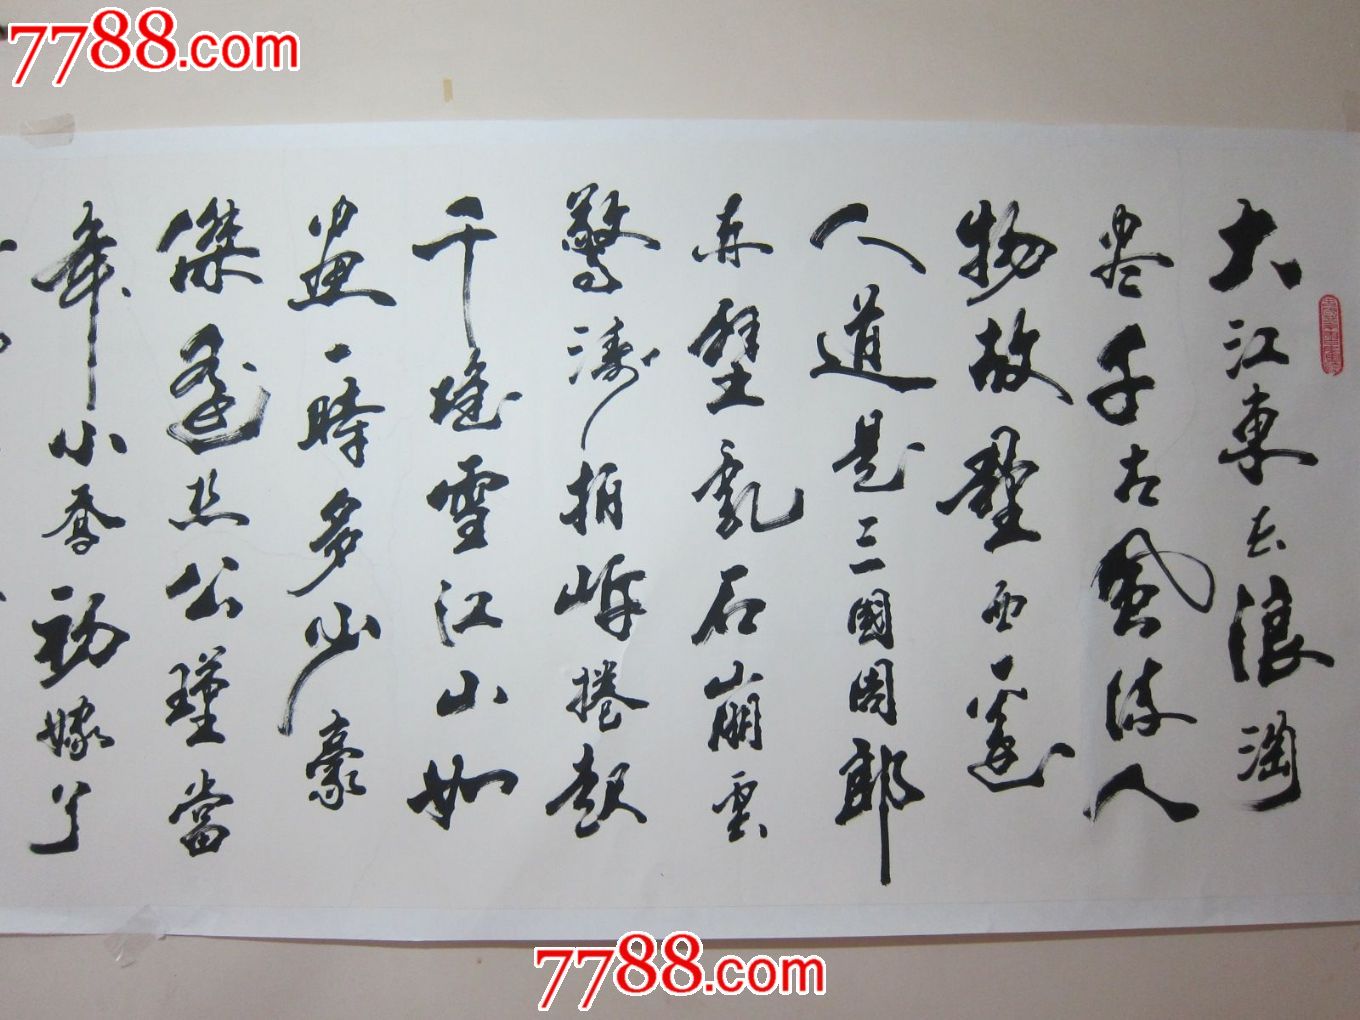 7788.com
大江東去浪淘
尽千古風流人
物故壘西邊
人道是三國周郎
赤壁亂石崩雲
驚濤拍岸捲起
千堆雪江山如
畫一時多少豪
傑遙想公瑾當
年小喬初嫁了
7788.com